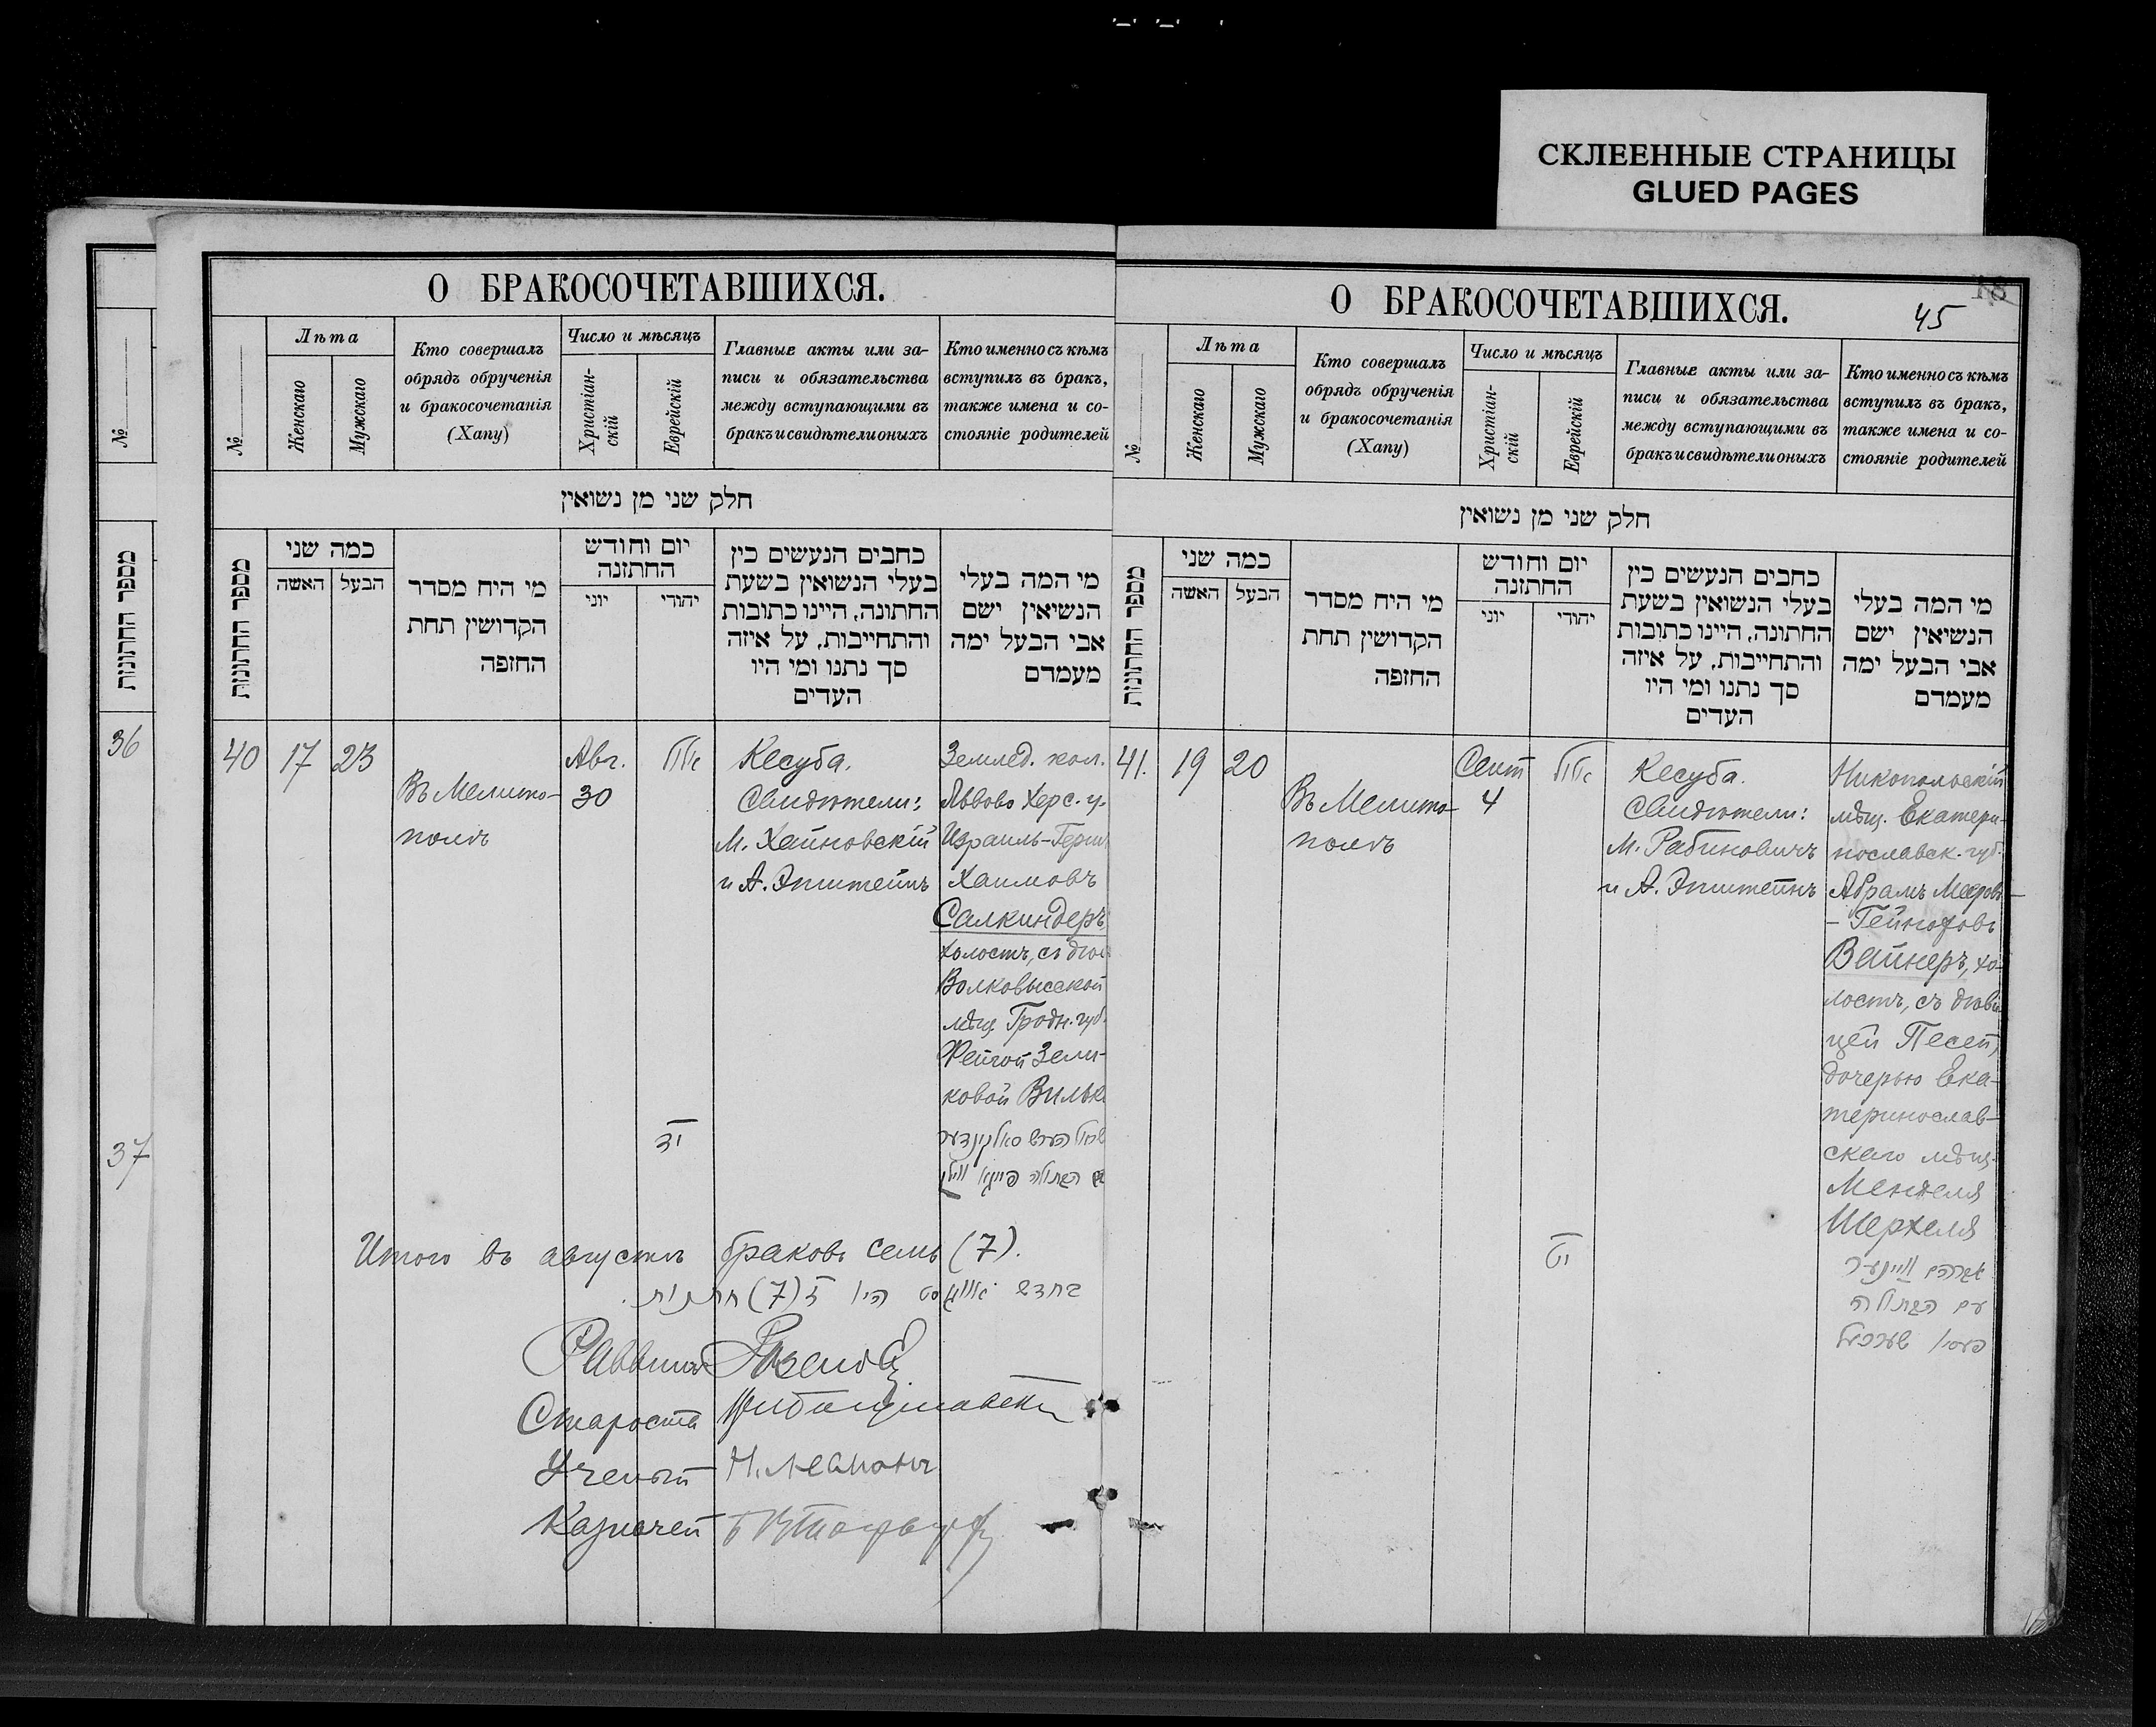 СКЛЕЕННЫЕ СТРАНИЦЫ
GLUED PAGES
№
מספר החתונות
36
37
О БРАКОСОЧЕТАВШИХСЯ.
№
Лѣта
Женскаго
Мужскаго
Кто совершалъ
обрядъ обрученія
и бракосочетанія
(Хапу)
Число и мѣсяцъ
Христіан-
скій
Еврейскій
Главные акты или за-
писи и обязательства
между вступающими въ
бракъ и свидѣтели оныхъ
Кто именно съ кѣмъ
вступилъ въ бракъ,
также имена и со-
стояніе родителей
חלק שני מן נשואין
מספר החתונות
כמה שני
האשה
הבעל
מי היח מסדר
הקדושין תחת
החופה
יום וחודש
החתונה
יוני
יהודי
כחבים הנעשים כין
בעלי הנשואין בשעת
החתונה, היינו כתובות
והתחייבות, על איזה
סך נתנו ומי היו
העדים
מי המה בעלי
הנשיאין ישם
אבי הבעל ימה
מעמדם
40
17
23
Въ Мелито-
полѣ
Авг.
30
יד
Кесуба.
Свидѣтели:
М. Хайновскій
и А. Эпштейнъ
Землед. кол.
Львово Херс. г.
Израиль-Герш
Хаимовъ
Салкиндеръ
холостъ, съ дѣв
Волковысской
мѣщ. Гродн. губ.
Фейгой Зели-
ковой Вильк
Итого въ августѣ браковъ семь (7).
בחדש אויגוסט היו ז (7) חתונות.
Раввинъ
Староста
Ученый
Казначей
О БРАКОСОЧЕТАВШИХСЯ.
45
№
Лѣта
Женскаго
Мужскаго
Кто совершалъ
обрядъ обрученія
и бракосочетанія
(Хапу)
Число и мѣсяцъ
Христіан-
скій
Еврейскій
Главные акты или за-
писи и обязательства
между вступающими въ
бракъ и свидѣтели оныхъ
Кто именно съ кѣмъ
вступилъ въ бракъ,
также имена и со-
стояніе родителей
חלק שני מן נשואין
מספר החתונות
כמה שני
האשה
הבעל
מי היח מסדר
הקדושין תחת
החופה
יום וחודש
החתונה
יוני
יהודי
כחבים הנעשים כין
בעלי הנשואין בשעת
החתונה, היינו כתובות
והתחייבות, על איזה
סך נתנו ומי היו
העדים
מי המה בעלי
הנשיאין ישם
אבי הבעל ימה
מעמדם
41.
19
20
Въ Мелито-
полѣ
Сент
4
יט
Кесуба.
Свидѣтели:
М. Рабиновичъ
и А. Эпштейнъ
Никопольскій
мѣщ. Екатери-
нославск. губ.
Абрамъ Мееровъ-
-Гейноховъ
Вайнеръ, хо-
лостъ, съ дѣви
цей Песей,
дочерью Ека-
теринослав-
скаго мѣщ.
Менделя
Шерхеля
אברהם וויינער
עם הבתולה
פעסיל שערכעל